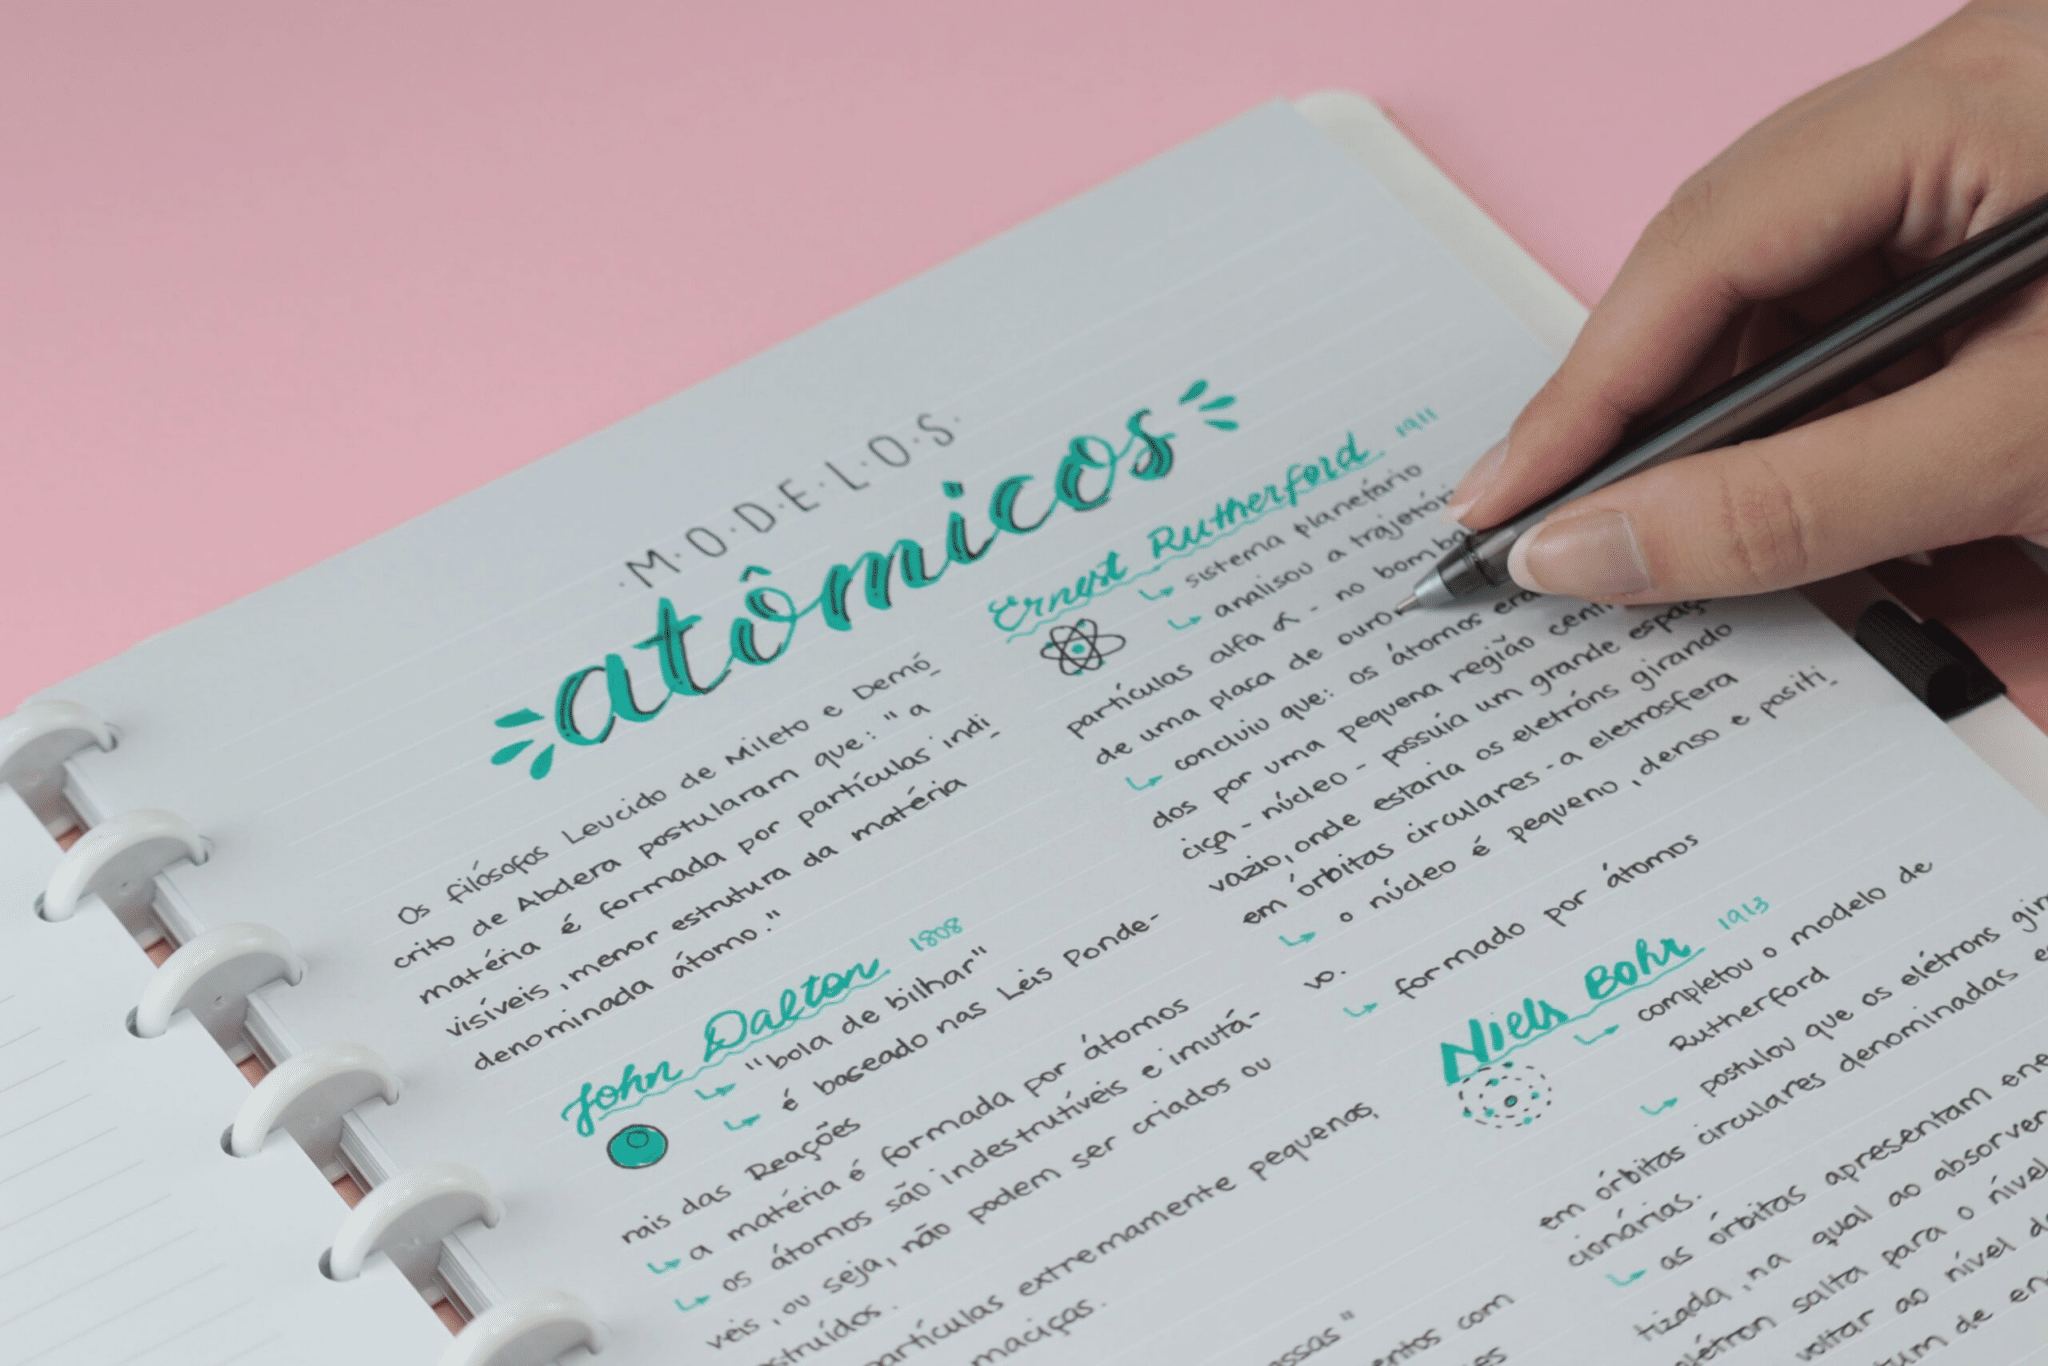 ·M·O·D·E·L·O·S·
atômicos
Os filósofos Leucido de Mileto e Demó
crito de Abdera postularam que: "a
matéria é formada por partículas indi
visíveis, menor estrutura da matéria
denominada átomo."
John Dalton 1808
"bola de bilhar"
é baseado nas Leis Ponde-
rais das Reações
a matéria é formada por átomos
os átomos são indestrutíveis e imutá-
veis, ou seja, não podem ser criados ou
struídos.
partículas extremamente pequenas,
maciças.
essas"
entos com
Ernest Rutherford 1911
sistema planetário
analisou a trajetóri
partículas alfa α - no bomba
de uma placa de ouro
concluiu que: os átomos era
dos por uma pequena região cent
ciça - núcleo - possuía um grande espaç
vazio, onde estaria os eletróns girando
em órbitas circulares - a eletrosfera
o núcleo é pequeno, denso e positi
vo.
formado por átomos
Niels Bohr 1913
completou o modelo de
Rutherford
postulou que os elétrons gir
em órbitas circulares denominadas e
cionárias.
as órbitas apresentam ene
tizada, na qual ao absorver
elétron salta para o nível
voltar ao nível d
tum de en